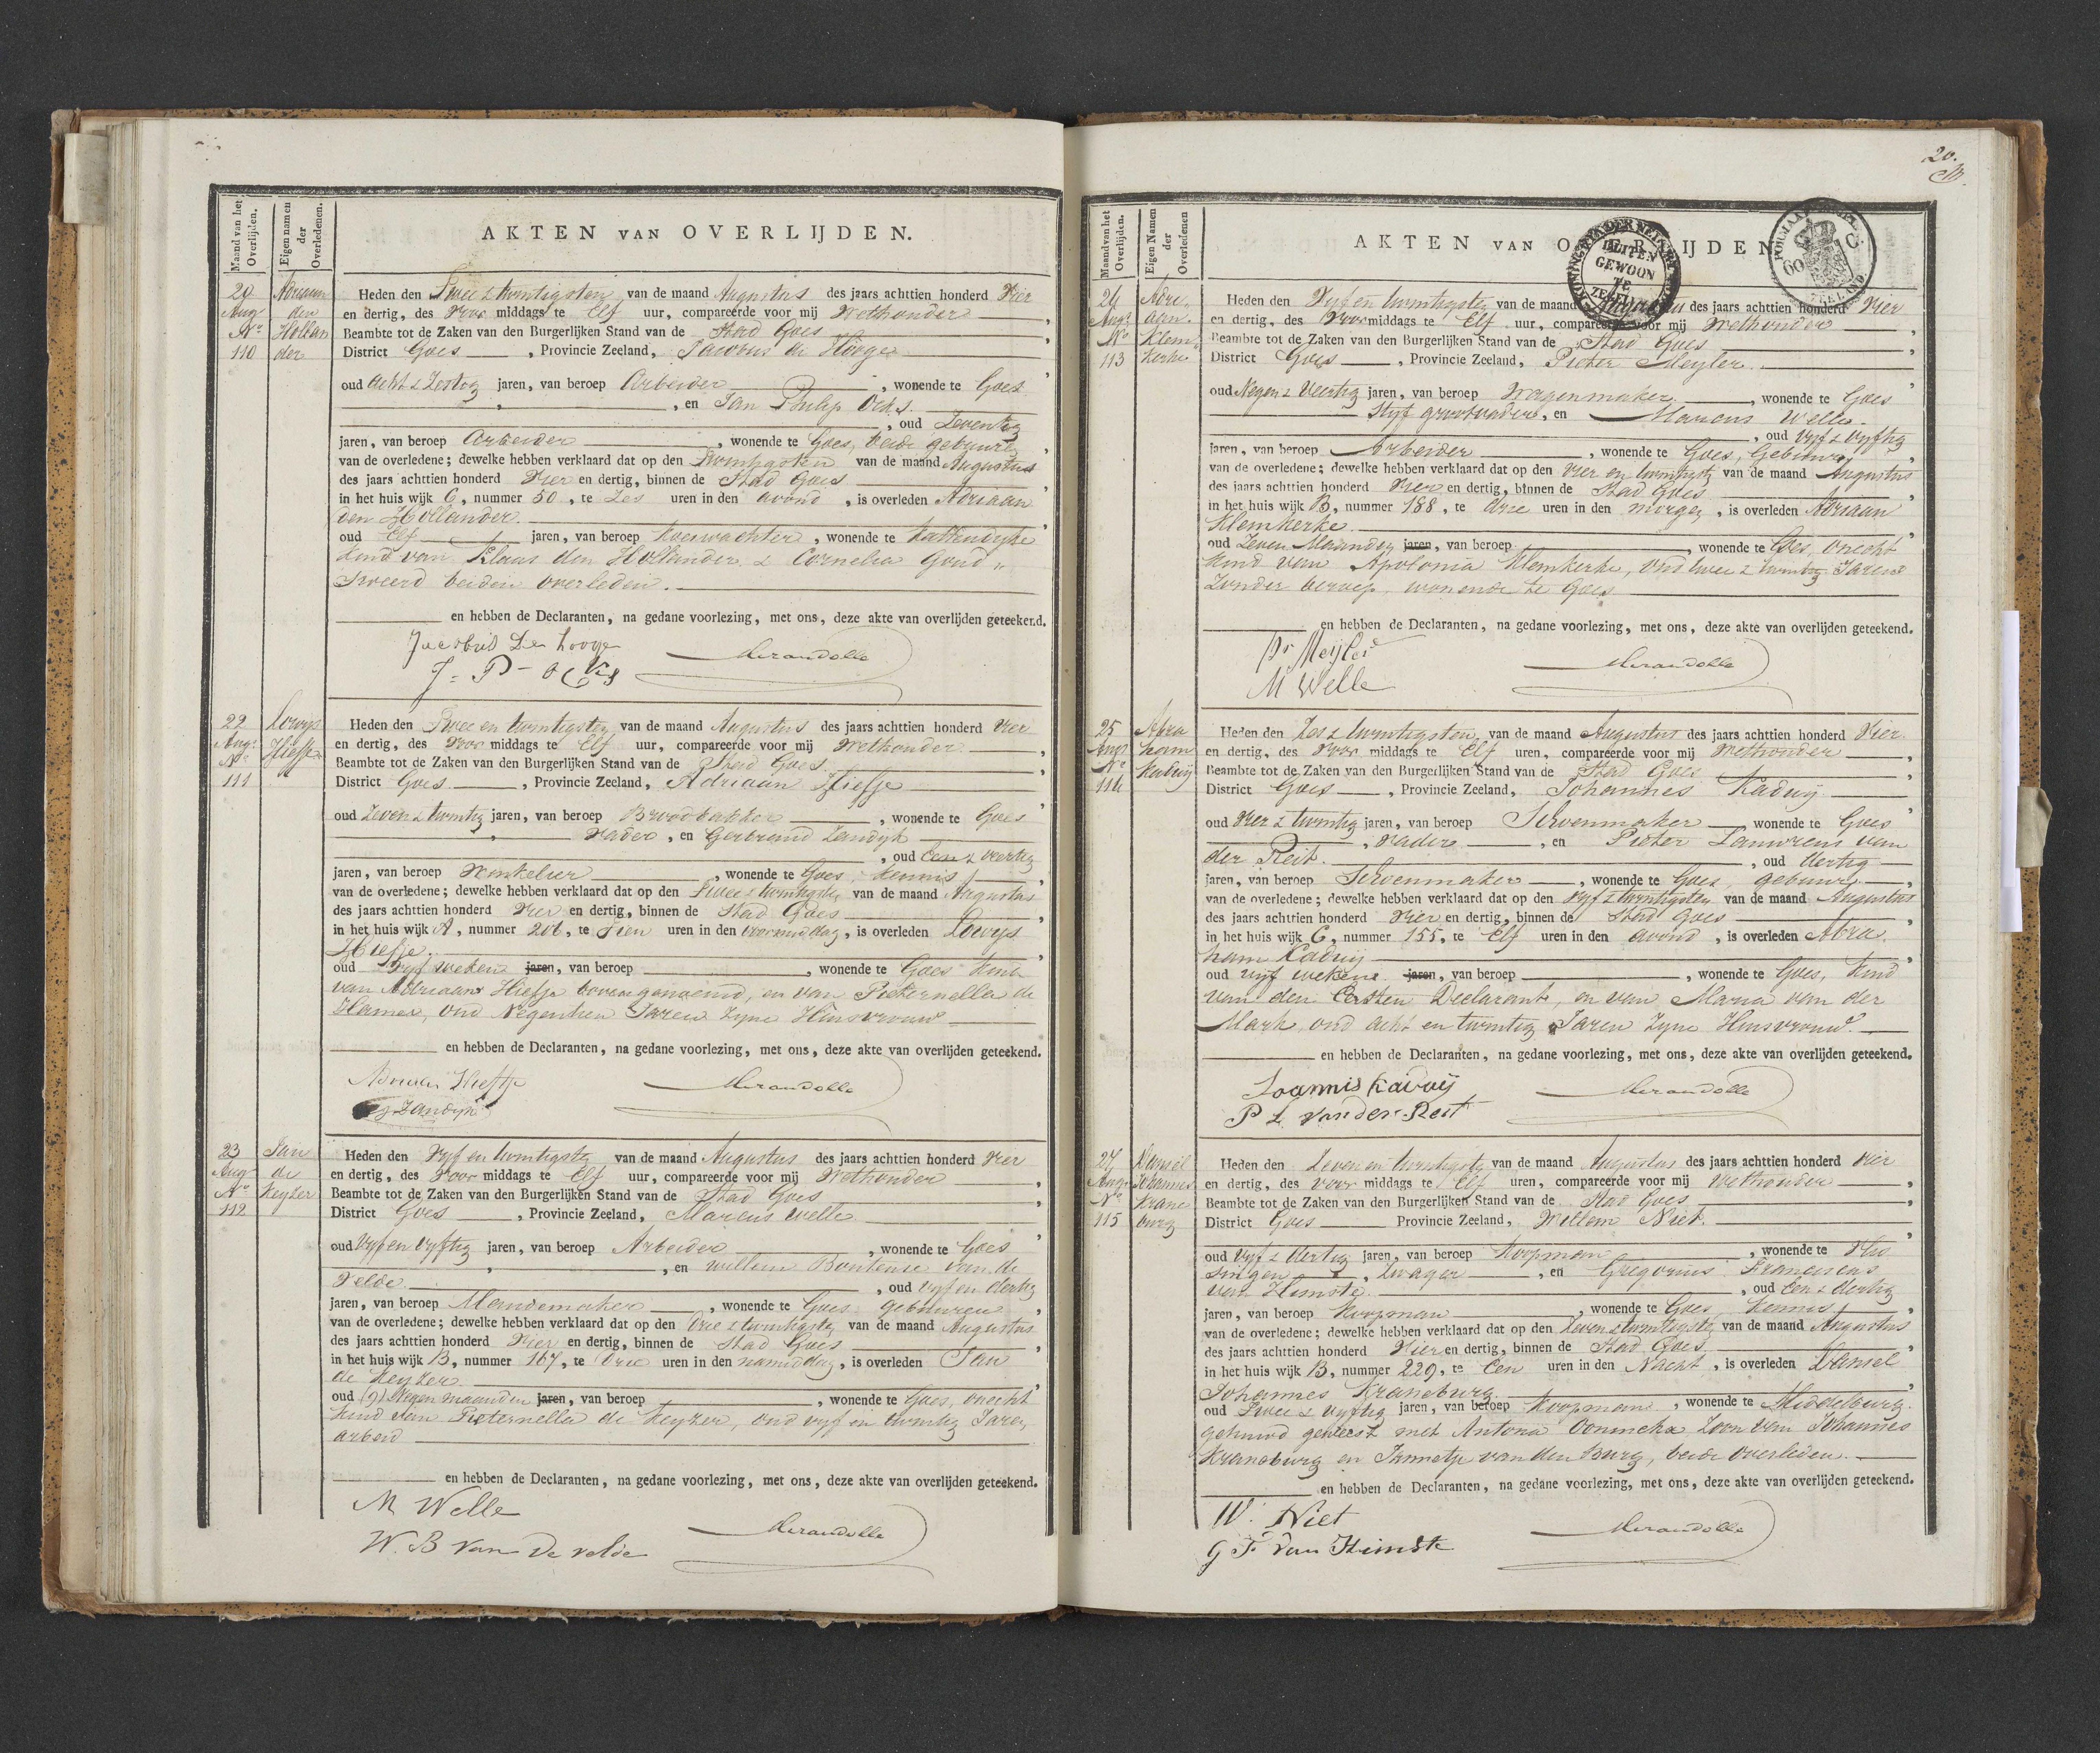 Maand van het Overlijden.
Eigen namen der Overledenen.
AKTEN VAN OVERLIJDEN.
20 Aug. No. 110
Adriaan den Hollander
Heden den Twee & twintigsten van de maand Augustus des jaars achttien honderd Vier
en dertig, des Voor middags te Elf uur, compareerde voor mij Wethouder
Beambte tot de Zaken van den Burgerlijken Stand van de Stad Goes
District Goes, Provincie Zeeland, Jacobus de Hooge
oud Acht & Zestig jaren, van beroep Arbeider, wonende te Goes
, en Jan Philip Ocks.
, oud Zeventig
jaren, van beroep Arbeider, wonende te Goes, beide gebuuren
van de overledene; dewelke hebben verklaard dat op den Twintigsten van de maand Augustus
des jaars achttien honderd Vier en dertig, binnen de Stad Goes
in het huis wijk C, nummer 50, te Zes uren in den avond, is overleden Adriaan
den Hollander.
oud Elf jaren, van beroep Koewachter, wonende te Kattendijke
kind van Klaas den Hollander & Cornelia Goud„
Zweerd beiden overleden.
en hebben de Declaranten, na gedane voorlezing, met ons, deze akte van overlijden geteekend.
Jacobus De hooge
J: P- ocks
Mirandolle
22 Aug. No. 111
Lowys Hiefje
Heden den Twee en twintigsten van de maand Augustus des jaars achttien honderd Vier
en dertig, des Voor middags te Elf uur, compareerde voor mij Wethouder
Beambte tot de Zaken van den Burgerlijken Stand van de Stad Goes
District Goes, Provincie Zeeland, Adriaan Hiefje
oud Zeven & twintig jaren, van beroep Broodbakker, wonende te Goes
Vader, en Gerbrand Zandijk
, oud Een & veertig
jaren, van beroep Winkelier, wonende te Goes, Kennis
van de overledene; dewelke hebben verklaard dat op den Twee & twintigsten van de maand Augustus
des jaars achttien honderd Vier en dertig, binnen de Stad Goes
in het huis wijk A, nummer 206, te Tien uren in den voormiddag, is overleden Lowys
Hiefje.
oud Vyf weken jaren, van beroep, wonende te Goes kind
van Adriaan Hiefje boven genoemd, en van Pieternella de
Hamer, oud Negentien Jaren Zyne Huisvrouw
en hebben de Declaranten, na gedane voorlezing, met ons, deze akte van overlijden geteekend.
Adriaan Hiefje
G Zandijk
Mirandolle
23 Aug No. 112
Jan de Keyzer
Heden den Vyf en twintigste van de maand Augustus des jaars achttien honderd Vier
en dertig, des Voor middags te Elf uur, compareerde voor mij Wethouder
Beambte tot de Zaken van den Burgerlijken Stand van de Stad Goes
District Goes, Provincie Zeeland, Marcus Welle
oud Vyf en Vyftig jaren, van beroep Arbeider, wonende te Goes
, en Willem Bontense van de
Velde, oud vyf en dertig
jaren, van beroep Mandemaker, wonende te Goes gebuuren
van de overledene; dewelke hebben verklaard dat op den Drie & twintigste van de maand Augustus
des jaars achttien honderd Vier en dertig, binnen de Stad Goes
in het huis wijk B, nummer 167, te Drie uren in den namiddag, is overleden Jan
de Keyzer
oud (9) Negen maanden jaren, van beroep, wonende te Goes, onecht
kind van Pieternella de Keyzer, oud vyf en twintig Jaren,
arbeid
en hebben de Declaranten, na gedane voorlezing, met ons, deze akte van overlijden geteekend.
M Welle
W. B van De velde
Mirandolle
20.
Maand van het Overlijden.
Eigen Namen der Overledenen
AKTEN VAN OVERLIJDEN
BUITEN GEWOON TE ZEGELEN
60 C.
ZEELAND
24 Aug. No 113
Adriaan Klemkerke
Heden den Vyf en twintigste van de maand Augustus des jaars achttien honderd Vier
en dertig, des Voor middags te Elf uur, compareerde voor mij Wethouder
Beambte tot de Zaken van den Burgerlijken Stand van de Stad Goes
District Goes, Provincie Zeeland, Pieter Meyler
oud Negen & Veertig jaren, van beroep Wagenmaker, wonende te Goes
Styf grootvader, en Marcus Welle.
, oud Vyf & vyftig
jaren, van beroep Arbeider, wonende te Goes, Gebuur
van de overledene; dewelke hebben verklaard dat op den Vier en twintigste van de maand Augustus
des jaars achttien honderd Vier en dertig, binnen de Stad Goes
in het huis wijk B, nummer 188, te drie uren in den morgen, is overleden Adriaan
Klemkerke.
oud Zeven Maanden jaren, van beroep, wonende te Goes, onecht
kind van Apolonia Klemkerke, oud twee & twintig Jaren
Zonder beroep, wonende te Goes
en hebben de Declaranten, na gedane voorlezing, met ons, deze akte van overlijden geteekend.
Pr Meijler
M Welle
Mirandolle
25 Aug No 114
Abraham Kaduij
Heden den Zes & twintigsten, van de maand Augustus des jaars achttien honderd Vier
en dertig, des Voor middags te Elf uren, compareerde voor mij Wethouder
Beambte tot de Zaken van den Burgerlijken Stand van de Stad Goes
District Goes, Provincie Zeeland, Johannes Kaduij
oud Vier & twintig jaren, van beroep Schoenmaker wonende te Goes
, Vader, en Pieter Lauwrens van
der Reit., oud dertig
jaren, van beroep Schoenmaker, wonende te Goes, gebuur
van de overledene; dewelke hebben verklaard dat op den Vyf & twintigsten van de maand Augustus
des jaars achttien honderd Vier en dertig, binnen de Stad Goes
in het huis wijk C, nummer 155, te Elf uren in den avond, is overleden Abra
ham Kaduij
oud vyf weken jaren, van beroep, wonende te Goes, kind
van den Eersten Declarant, en van Maria van der
Mark, oud acht en twintig Jaren Zyne Huisvrouw.
en hebben de Declaranten, na gedane voorlezing, met ons, deze akte van overlijden geteekend.
Joannis kaduij
P L van der Reit
Mirandolle
27 Aug. No 115
Daniel Johannes Kraneburg
Heden den Zeven en twintigste van de maand Augustus des jaars achttien honderd Vier
en dertig, des voor middags te Elf uren, compareerde voor mij Wethouder
Beambte tot de Zaken van den Burgerlijken Stand van de Stad Goes
District Goes Provincie Zeeland, Willem Niet.
oud Vyf & dertig jaren, van beroep Koopman, wonende te Vlis
singen, Zwager, en Gregorius Franciscus
van Himste., oud Een & dertig
jaren, van beroep Koopman, wonende te Goes Kennis
van de overledene; dewelke hebben verklaard dat op den Zeven & twintigste van de maand Augustus
des jaars achttien honderd Vier en dertig, binnen de Stad Goes
in het huis wijk B, nummer 229, te Een uren in den Nacht, is overleden Daniel
Johannes Kraneburg.
oud Twee & vyftig jaren, van beroep Koopman, wonende te Middelburg.
gehuwd geweest met Antona Zoon van Johannes
Kraneburg en Jannetje van den Burg, beide overleden.
en hebben de Declaranten, na gedane voorlezing, met ons, deze akte van overlijden geteekend.
W. Niet
G F van Himste
Mirandolle